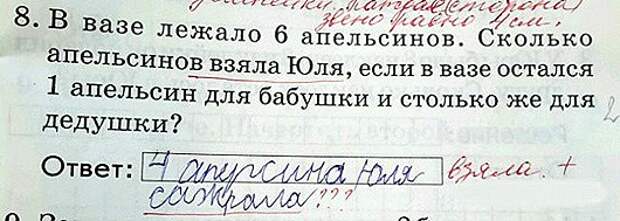 сторона
звено равно 1 см.
8. В вазе лежало 6 апельсинов. Сколько
апельсинов взяла Юля, если в вазе остался
1 апельсин для бабушки и столько же для
2
дедушки?
Ответ: 4 аперсина Юля взяла. +
сажрала ???